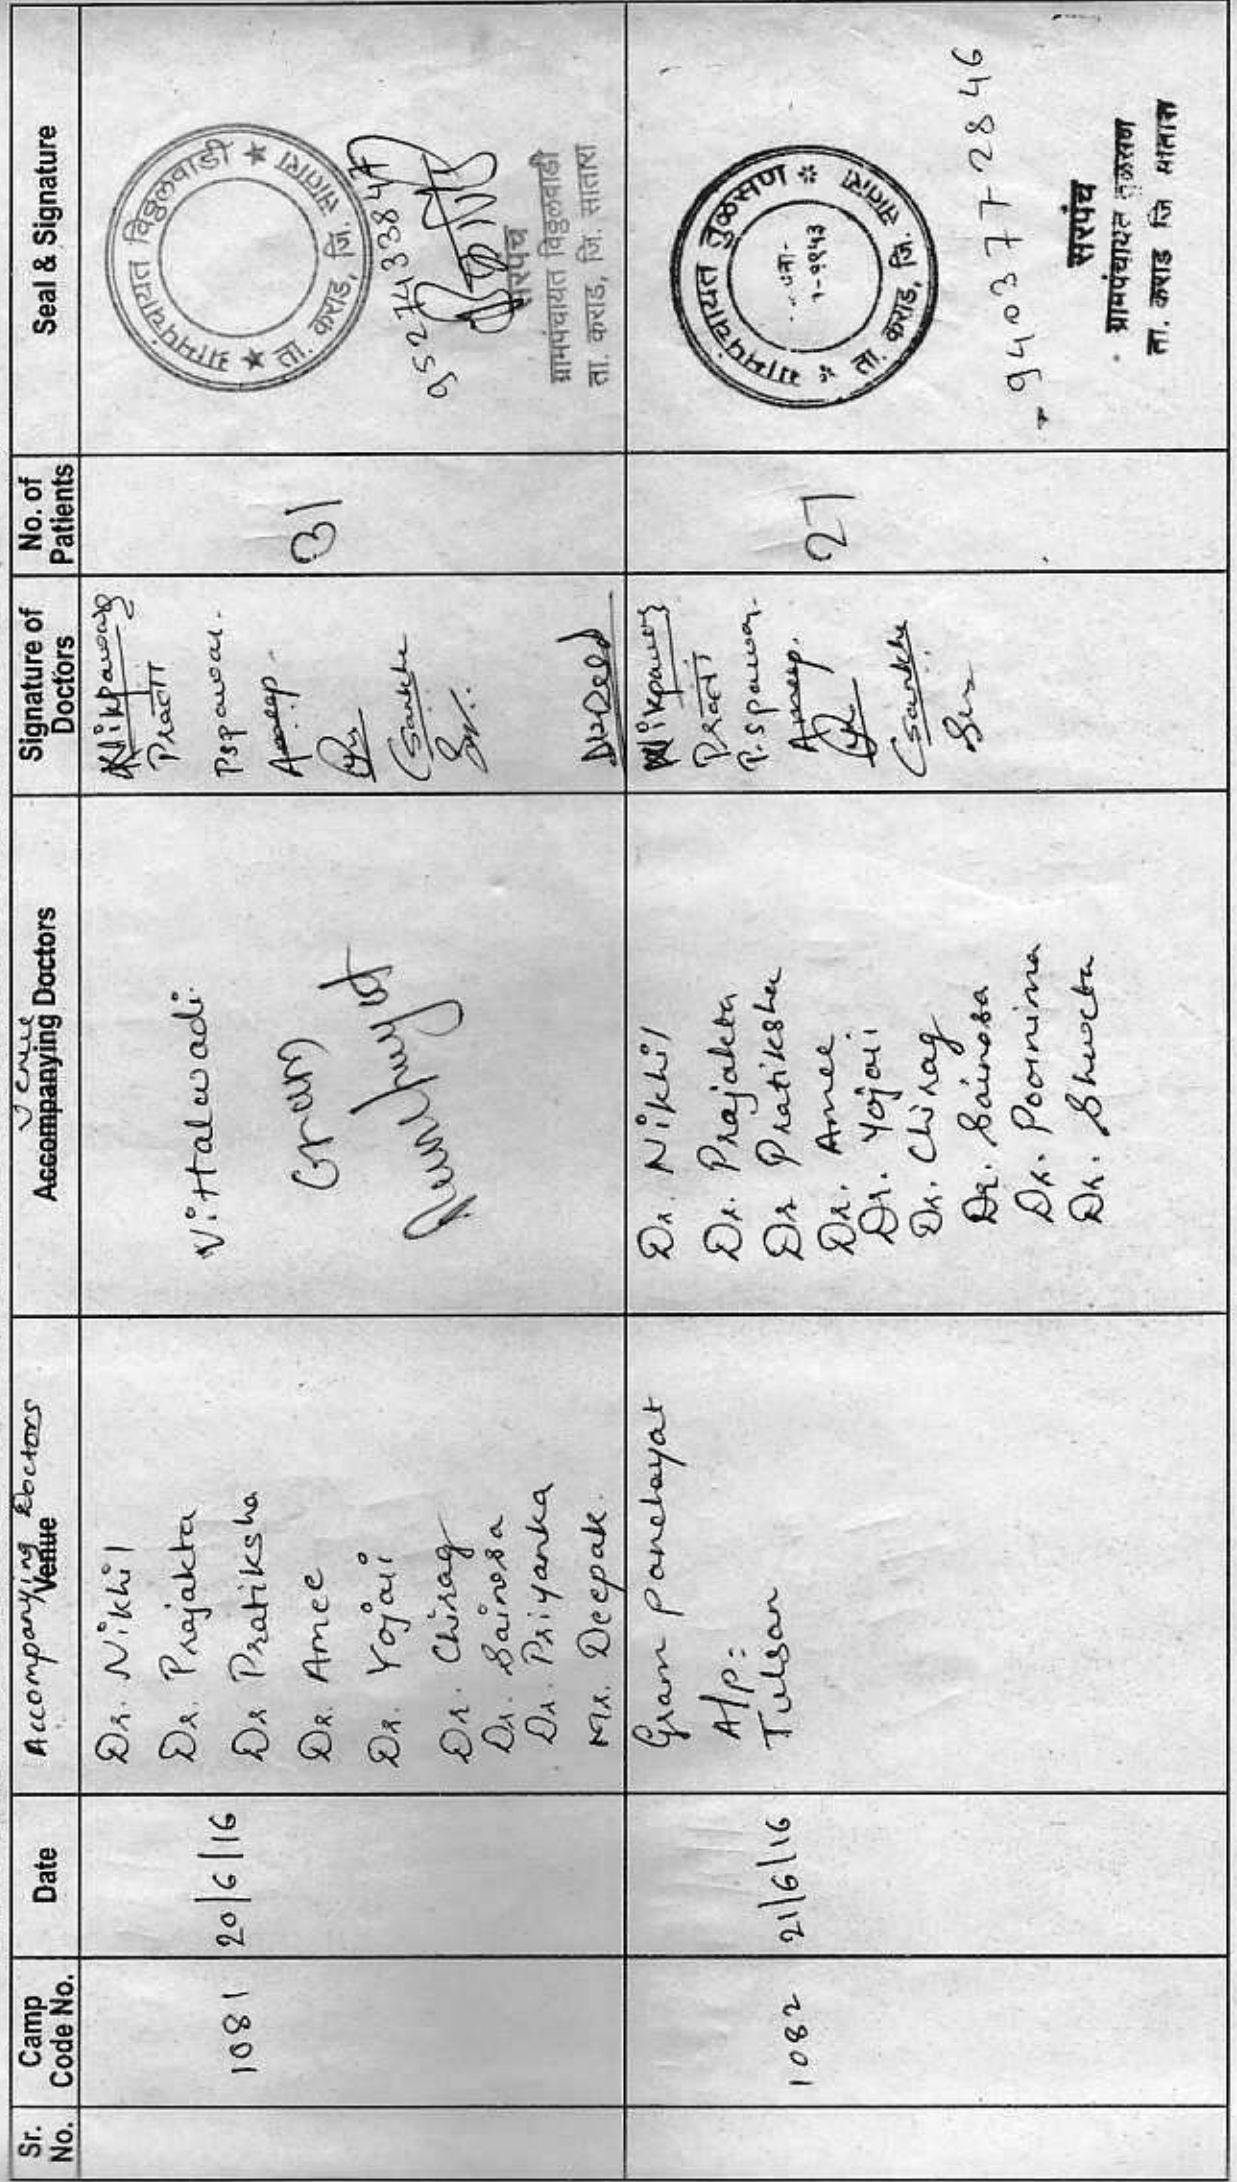 Sr. No.
Camp Code No.
Date
Accompanying Doctors
Venue
Venue
Accompanying Doctors
Signature of Doctors
No. of Patients
Seal & Signature
1081
20/6/16
Dr. Nikhil
Dr. Prajakta
Dr Pratiksha
Dr. Amee
Dr. Yojaii
Dr. Chirag
Dr. Sainosa
Dr. Priyanka
Mr. Deepak.
Vittalwadi
Gram
Nikpawar
Pspawar.
Ameep.
Csankhe
31
ग्रामपंचायत विठ्ठलवाडी
ता. कराड, जि. सातारा
सरपंच
ग्रामपंचायत विठ्ठलवाडी
ता. कराड, जि. सातारा
1082
21/6/16
Gram Panchayat
A/p:
Tulsan
Dr. Nikhil
Dr. Prajakta
Dr Pratiksha
Dr. Amee
Dr. Yojaii
Dr. Chirag
Dr. Sainosa
Dr. Poornima
Dr. Shweta
Nikpawar
P.spawar.
Ameep.
Csankhe
27
ग्रामपंचायत तुळसण
ता. कराड, जि. सातारा
9403772846
सरपंच
ग्रामपंचायत तुळसण
ता. कराड जि सातारा